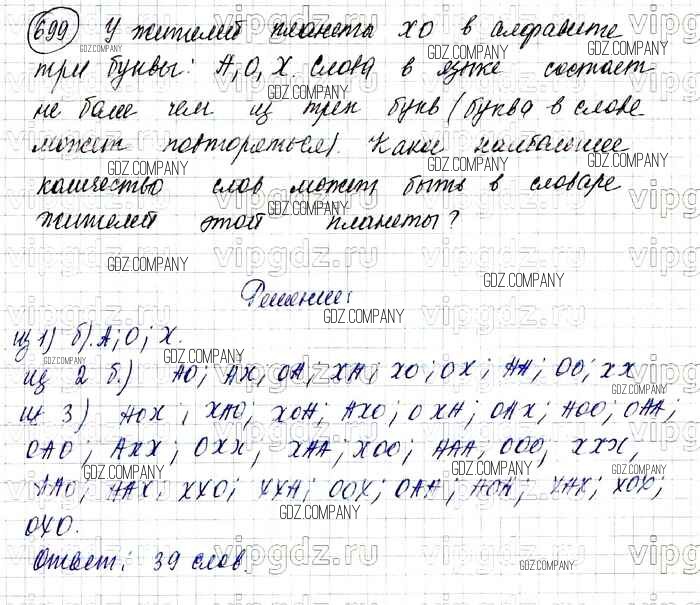 699 У жителей планеты ХО в алфавите
три буквы: А, О, Х. Слова в языке состоят
не более чем из трех букв (буква в слове
может повторяться). Какое наибольшее
количество слов может быть в словаре
жителей этой планеты?
Решение:
из 1) б). А; О; Х.
из 2 б.) АО; АХ; ОА; ХА; ХО; ОХ; АА; ОО; ХХ
из 3) АОХ; ХАО; ХОА; АХО; ОХА; ОАХ; АОО; ОАА;
ОАО; АХХ; ОХХ; ХАА; ХОО; ААА; ООО; ХХХ,
ААО; ААХ; ХХО; ХХА; ООХ; ОАА; АОА; ХАХ; ХОХ;
ОХО.
Ответ: 39 слов.
GDZ.COMPANY
vipgdz.ru